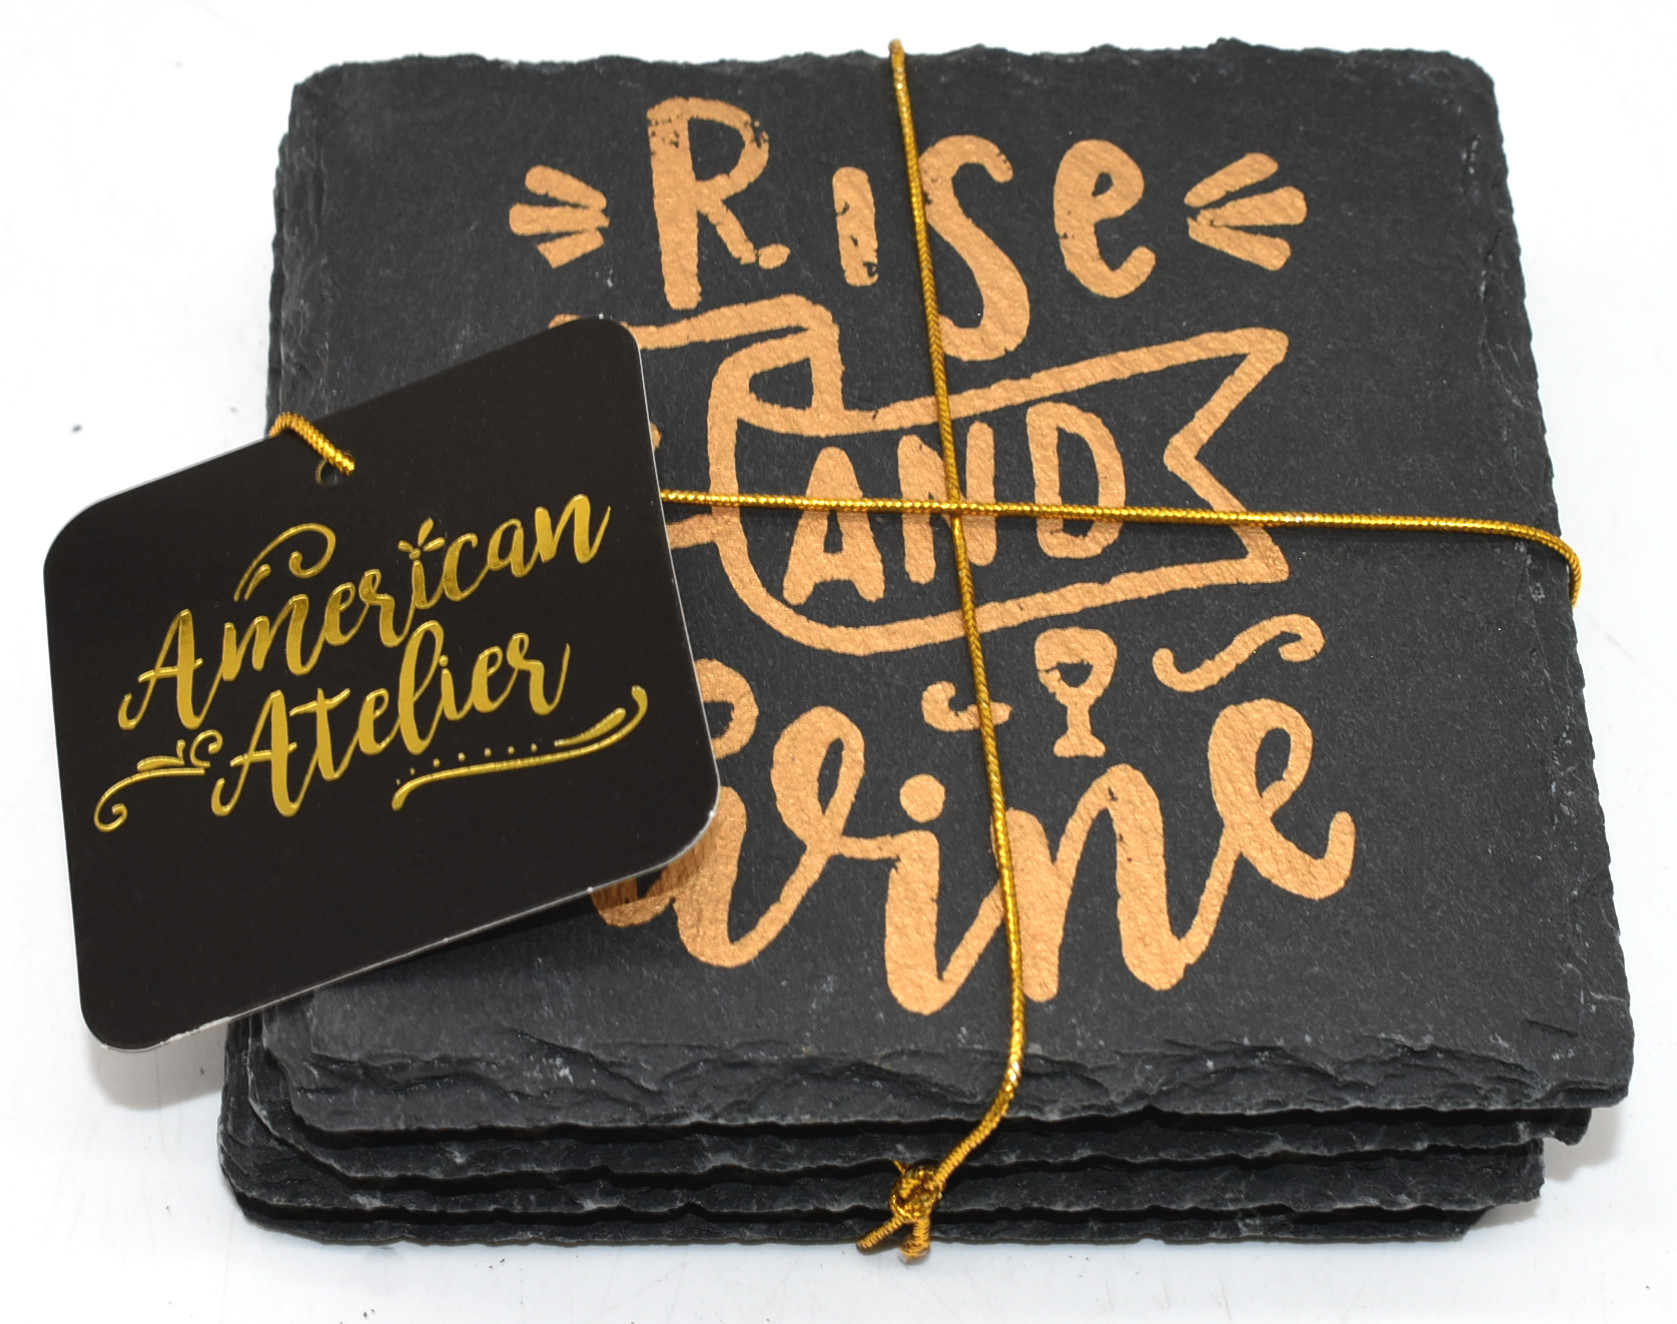 RISe
AND
Wine
American
Atelier